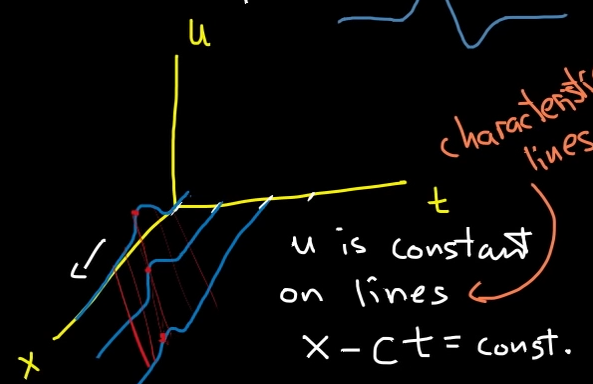 u
characteristic
lines
t
u is constant
on lines
x - ct = const.
x